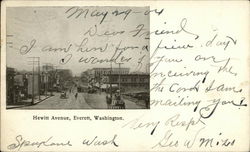 May 29-04
Dear Friend,
I am here for a few days
I wonder if you are on
receiving the
the Card I am
mailing you?
Hewitt Avenue, Everett, Washington.
Very Resp'y
Spokane Wash Geo W Miles